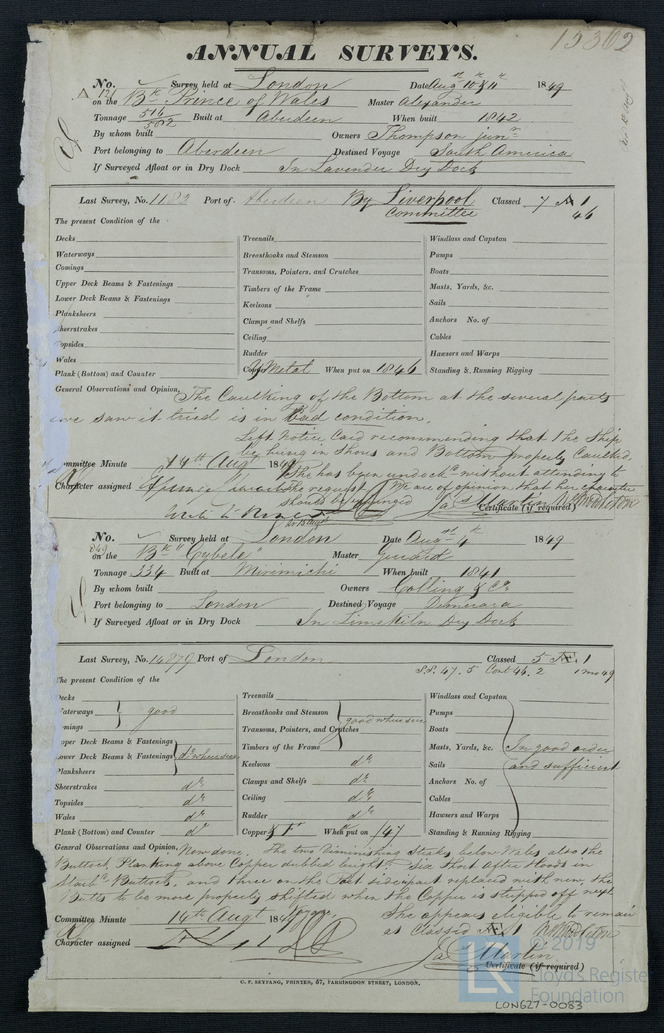 15302
ANNUAL SURVEYS.
No. Survey held at London Date Augst 10th & 11th 1849
on the Bk Prince of Wales Master Alexander
Tonnage 516 582 Built at Aberdeen When built 1842
By whom built Owners Thompson junr
Port belonging to Aberdeen Destined Voyage South America
If Surveyed Afloat or in Dry Dock In Lavender Dry Dock
Last Survey, No. Port of Aberdeen By Liverpool Committee Classed 7 Æ 1
46
The present Condition of the
Decks Treenails Windlass and Capstan
Waterways Breasthooks and Stemson Pumps
Comings Transoms, Pointers, and Crutches Boats
Upper Deck Beams & Fastenings Timbers of the Frame Masts, Yards, &c.
Lower Deck Beams & Fastenings Keelsons Sails
Planksheers Clamps and Shelfs Anchors No. of
Sheerstrakes Ceiling Cables
Topsides Rudder Hawsers and Warps
Wales Copper Y Metal When put on 1846 Standing & Running Rigging
Plank (Bottom) and Counter
General Observations and Opinion, The Caulking of the Bottom at the several parts
we saw it tried is in bad condition.
Left Notice Card recommending that the Ship
be hung in Shores and Bottom properly Caulked.
Committee Minute 14th Augt 1849 She has been undockd without attending to
Character assigned the request & We are of opinion that her character
should be
Jas Martin
Certificate (if required)
No. Survey held at London Date Augst 4th 1849
on the Bk "Cybele" Master
Tonnage 334 Built at Mirimichi When built 1841
By whom built Owners Colling & Co.
Port belonging to London Destined Voyage Demerara
If Surveyed Afloat or in Dry Dock In Limekiln Dry Dock
Last Survey, No. 14879 Port of London Classed 5 Æ 1
S.S. 47. 5 Cont 46. 2 1 mo 49
The present Condition of the
Decks Treenails Windlass and Capstan
Waterways good Breasthooks and Stemson good where seen Pumps
Comings Transoms, Pointers, and Crutches Boats
Upper Deck Beams & Fastenings Timbers of the Frame Masts, Yards, &c. In good order
Lower Deck Beams & Fastenings do where seen Keelsons do Sails and sufficient
Planksheers Clamps and Shelfs do Anchors No. of
Sheerstrakes do Ceiling do Cables
Topsides do Rudder do Hawsers and Warps
Wales do Copper & Ft When put on /47 Standing & Running Rigging
Plank (Bottom) and Counter do
General Observations and Opinion, Now done. The two Diminishing Strakes below Wales also the
Buttock Planking above Copper dubbed bright. Six Shot After Hoods in
Starbd Buttock, and three on the Port side part replaced with new, the
Butts to be more properly shifted when the Copper is stripped off next
voyage.
Committee Minute 14th Augt 1849 She appears eligible to remain
Character assigned Æ 1 as Classed Æ 1
Jas Martin
Certificate (if required)
C. F. SEYFANG, PRINTER, 57, FARRINGDON STREET, LONDON.
© 2019
LR
Lloyd's Register
Foundation
LON627-0083